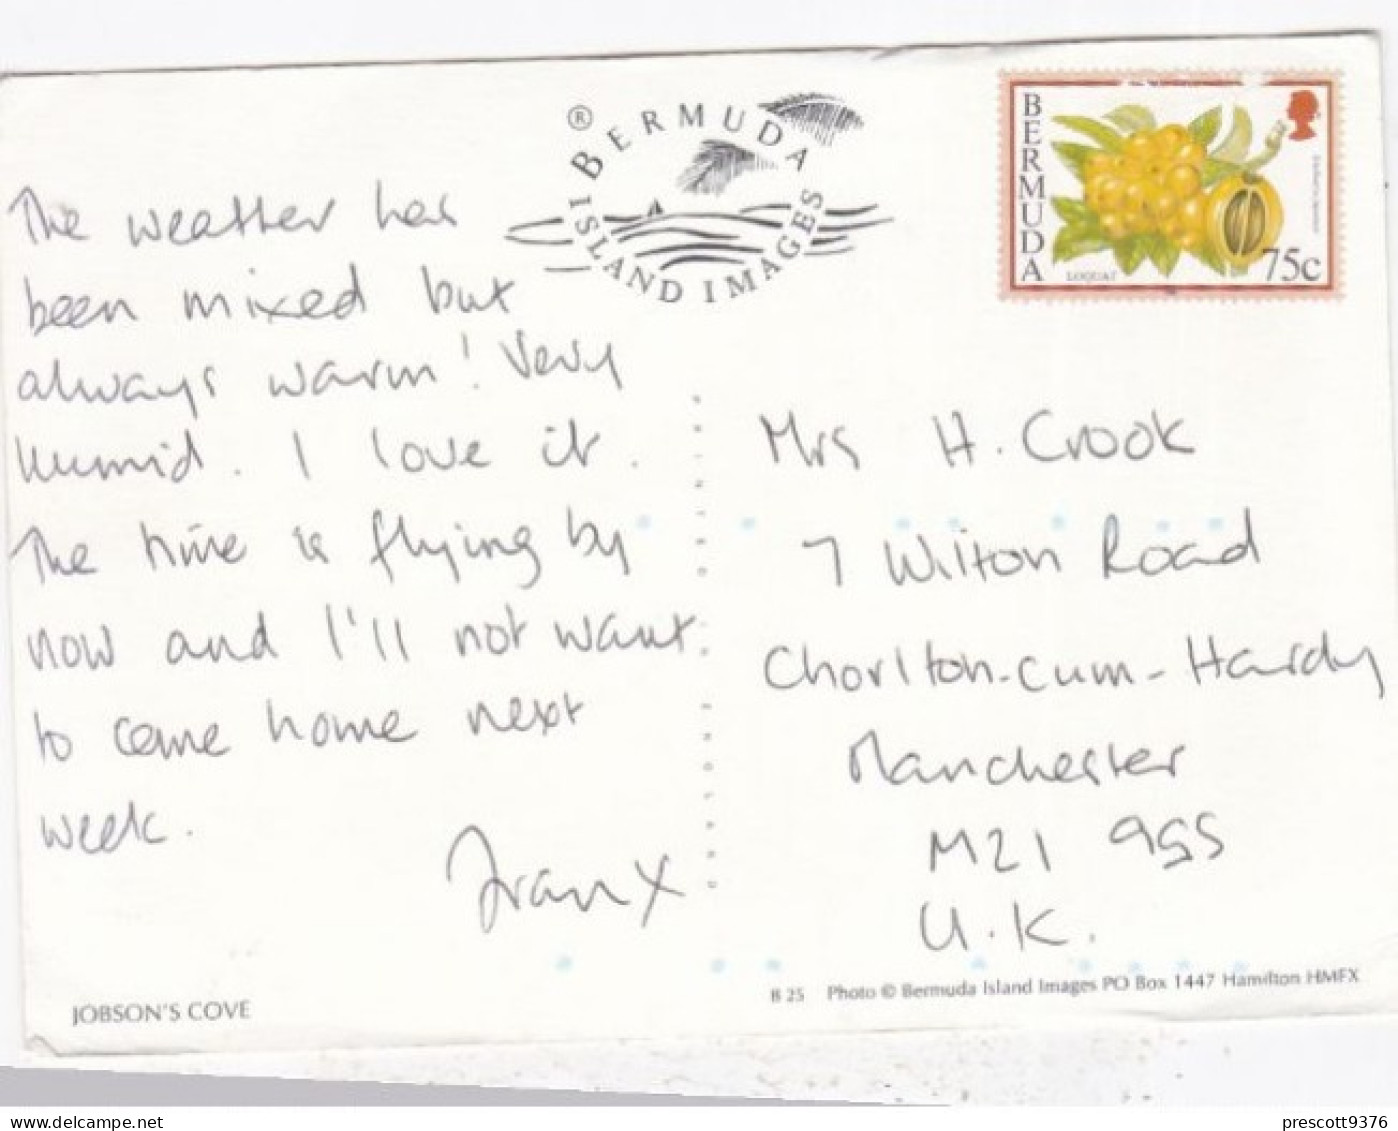 ® BERMUDA
ISLAND IMAGES
BERMUDA
LOQUAT
75c
The weather has
been mixed but
always warm! Very
humid. I love it.
The time is flying by
now and I'll not want
to come home next
week.
Fran X
Mrs H. Crook
7 Wilton Road
Chorlton-cum-Hardy
Manchester
M21 9GS
U.K.
JOBSON'S COVE
B 25 Photo © Bermuda Island Images PO Box 1447 Hamilton HMFX
delcampe.net
prescott9376